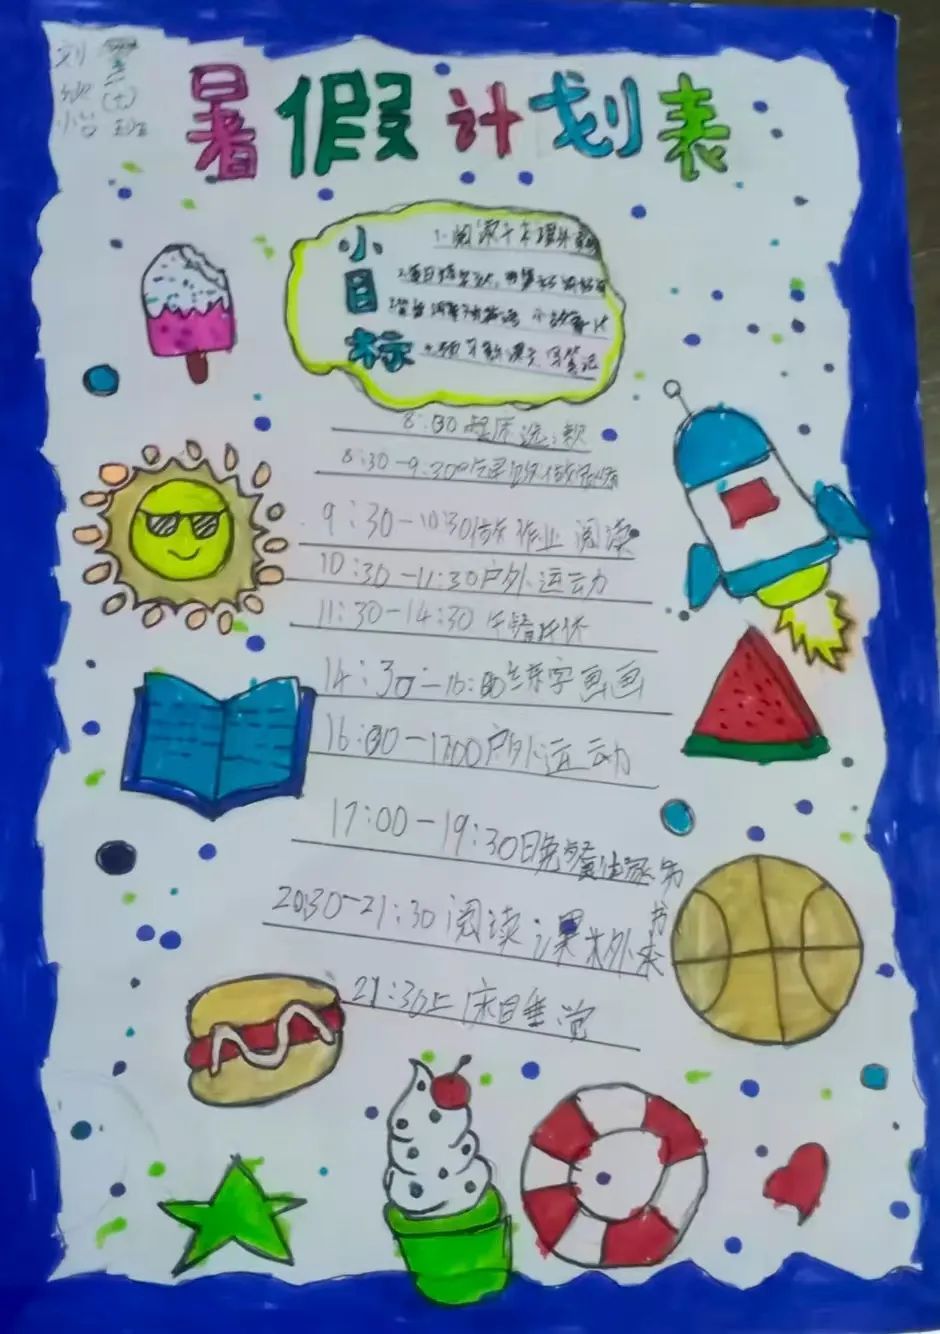 刘
怡
班
暑假计划表
小目标
1.阅读十本课外书
4.预习新课文 写笔记
8:00起床洗漱
8:30-9:30吃早饭做家务
9:30-10:30做作业 阅读
10:30-11:30户外运动
11:30-14:30午睡午休
14:30-16:00练字画画
16:00-17:00户外运动
17:00-19:30晚餐做家务
20:30-21:30阅读课外书本
21:30上床睡觉